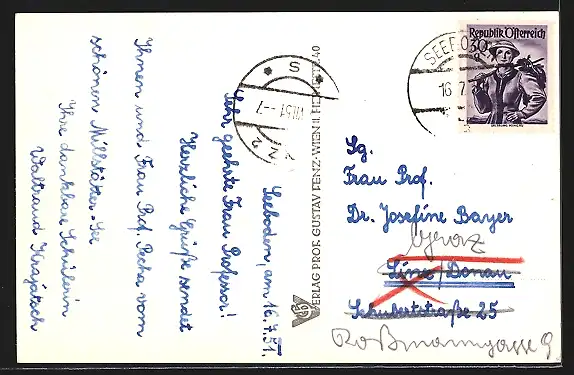 Seeboden, am 16.7.51.
Sehr geehrte Frau Professor!
Herzliche Grüße sendet
Ihnen und Frau Prof. Pecha vom
schönen Millstätter-See
Ihre dankbare Schülerin
Waltraud
VERLAG PROF. GUSTAV FENZ-WIEN II.
S
VII.51--7
Republik Österreich
30
SEEBO
16.7
Sg.
Frau Prof.
Dr. Josefine Bayer
Graz
Linz/Donau
Schubertstraße 25
Roßmanngasse 9